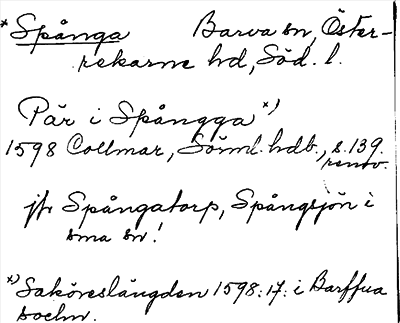 *Spånga Barva sn, Öster-
rekarne hd, Söd. l.
Pär i Spångga *)
1598 Collmar, Sörml. hdb., s. 139.
renov.
jfr Spångatorp, Spångsjön i
sma sn!
*) Saköreslängden 1598:17: i Barffua
sochn.